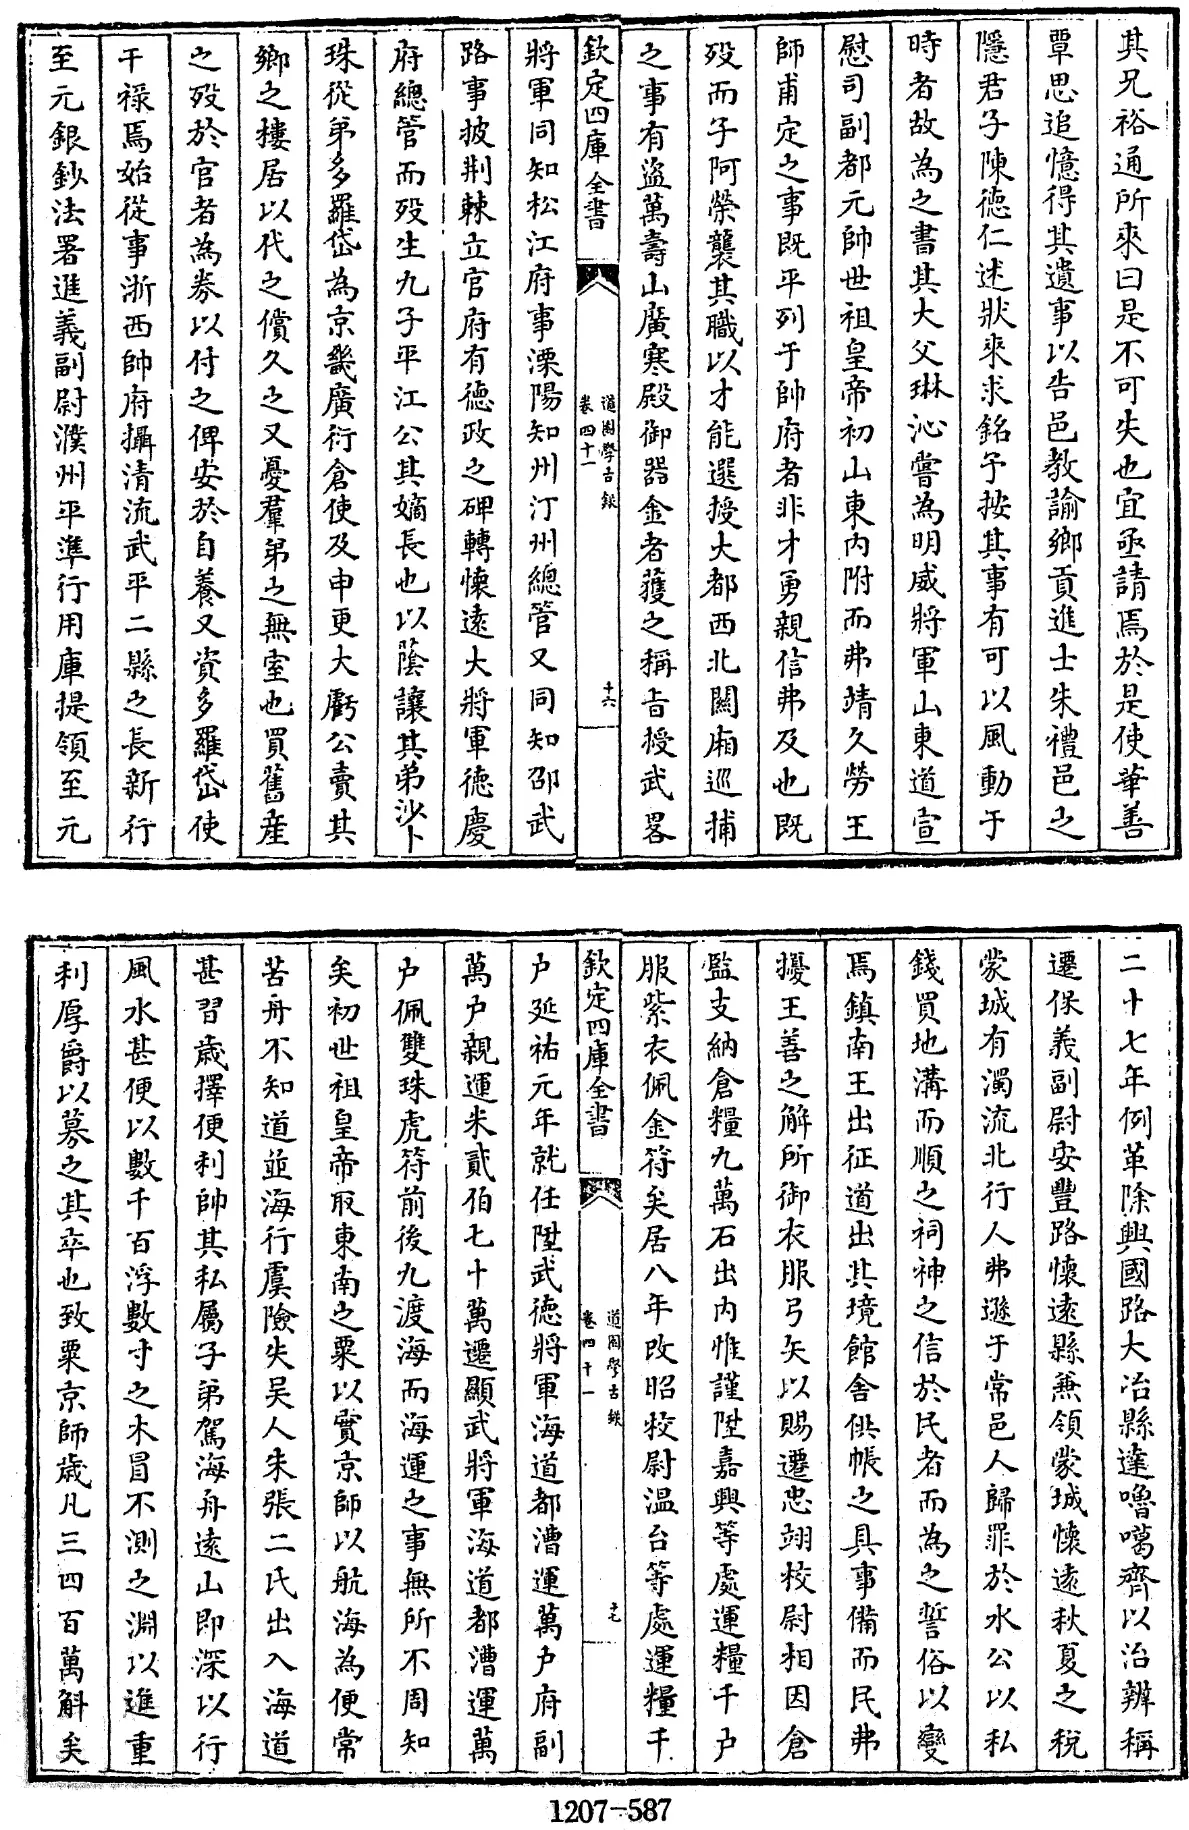 其兄裕通所來曰是不可失也宜亟請焉於是使華善
覃思追憶得其遺事以告邑教諭鄉貢進士朱禮邑之
隱君子陳德仁述狀來求銘予按其事有可以風動于
時者故為之書其大父琳沁嘗為明威將軍山東道宣
慰司副都元帥世祖皇帝初山東內附而弗靖久勞王
師甫定之事既平列于帥府者非才勇親信弗及也既
歿而子阿榮襲其職以才能選授大都西北關廂巡捕
之事有盜萬壽山廣寒殿御器金者獲之稱旨授武畧
欽定四庫全書
道園學古錄
卷四十一
十六
將軍同知松江府事溧陽知州汀州總管又同知邵武
路事披荆棘立官府有德政之碑轉懷遠大將軍德慶
府總管而歿生九子平江公其嫡長也以蔭讓其弟沙卜
珠從弟多羅岱為京畿廣衍倉使及申更大虧公賣其
鄉之樓居以代之償久之又憂羣弟之無室也買舊產
之歿於官者為券以付之俾安於自養又資多羅岱使
干祿焉始從事浙西帥府攝清流武平二縣之長新行
至元銀鈔法署進義副尉濮州平準行用庫提領至元
二十七年例革除興國路大冶縣達嚕噶齊以治辨稱
遷保義副尉安豐路懷遠縣兼領蒙城懷遠秋夏之稅
蒙城有濁流北行人弗遜于常邑人歸罪於水公以私
錢買地溝而順之祠神之信於民者而為之誓俗以變
焉鎮南王出征道出其境館舍供帳之具事備而民弗
擾王善之解所御衣服弓矢以賜遷忠翊校尉相因倉
監支納倉糧九萬石出內惟謹陞嘉興等處運糧千户
服紫衣佩金符矣居八年改昭校尉溫台等處運糧千
欽定四庫全書
道園學古錄
卷四十一
十七
户延祐元年就任陞武德將軍海道都漕運萬户府副
萬户親運米貳伯七十萬遷顯武將軍海道都漕運萬
户佩雙珠虎符前後九渡海而海運之事無所不周知
矣初世祖皇帝取東南之粟以實京師以航海為便常
苦舟不知道並海行虞險失吴人朱張二氏出入海道
甚習歲擇便利帥其私屬子弟駕海舟遠山即深以行
風水甚便以數千百浮數寸之木冒不測之淵以進重
利厚爵以募之其卒也致粟京師歲凡三四百萬斛矣
1207-587